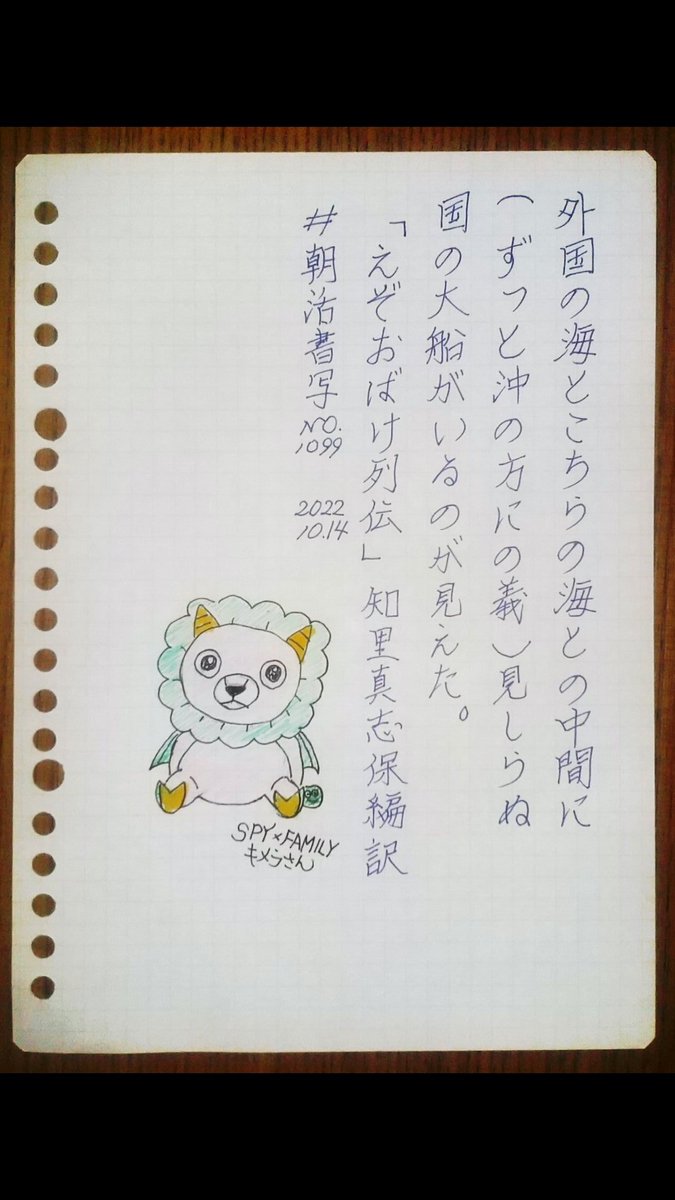 外国の海とこちらの海との中間に
(ずっと沖の方にの義)見しらぬ
国の大船がいるのが見えた。
「えぞおばけ列伝」 知里真志保編訳
#朝活書写 NO.
1099
2022
10.14
SPY×FAMILY
キメラさん